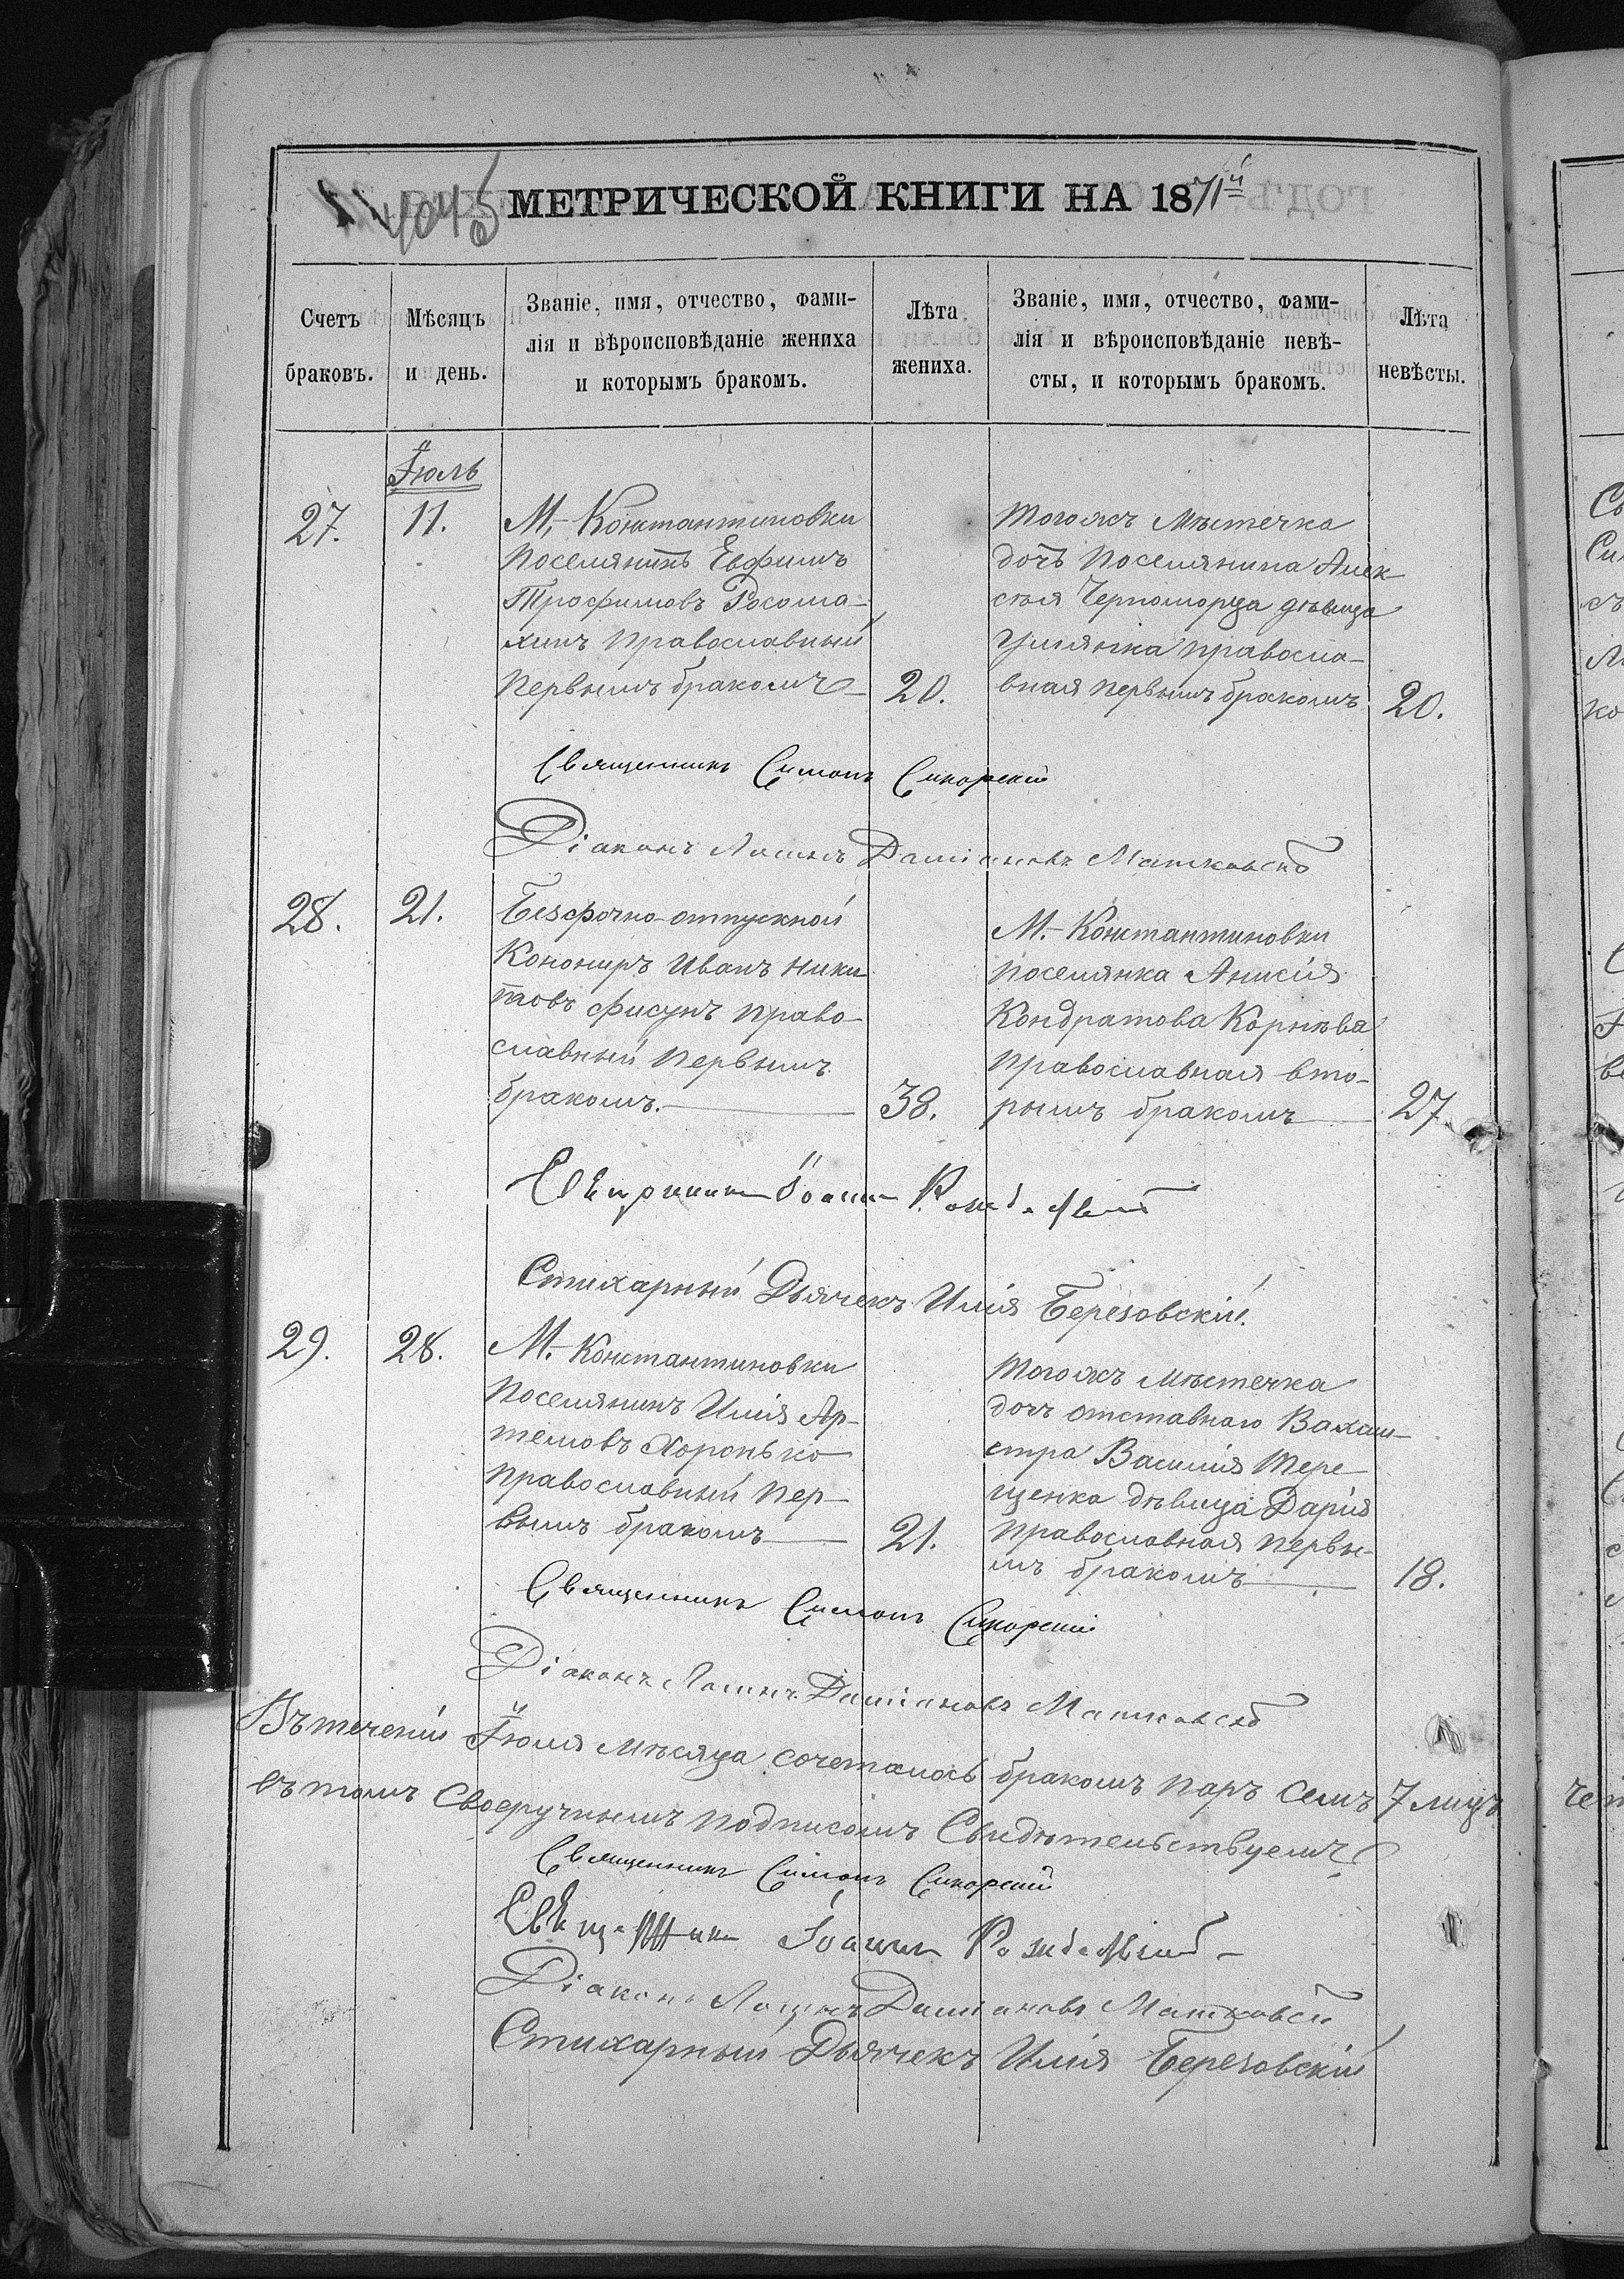 4045 МЕТРИЧЕСКОЙ КНИГИ НА 1871й
Счетъ браковъ.
Мѣсяцъ и день.
Званіе, имя, отчество, фами-
лія и вѣроисповѣданіе жениха
и которымъ бракомъ.
Лѣта
жениха.
Званіе, имя, отчество, фами-
лія и вѣроисповѣданіе невѣ-
сты, и которымъ бракомъ.
Лѣта
невѣсты.
Іюль
27. 11.
М. Константиновки
Поселянинъ Евфимъ
Трофимовъ Росома-
хинъ православный
первымъ бракомъ 20.
тогожъ мѣстечка
дочъ поселянина Алек
сѣя Черноморца дѣвица
Уліянка правосла-
вная первымъ бракомъ 20.
Священникъ Симонъ Сикорскій
Діаконъ Даміановъ
28. 21.
Безсрочно-отпускной
Конониръ Иванъ Ники
товъ Фисунъ право-
славный первымъ
бракомъ. 38.
М. Константиновки
поселянка Анисія
Кондратова Корнѣва
православная вто-
рымъ бракомъ 27
Іоаннъ
Стихарный Дьячекъ Илія Березовскій.
29. 28.
М. Константиновки
Поселянинъ Илія Ар-
темовъ Хоронько
православный пер-
вымъ бракомъ 21.
тогожъ мѣстечка
дочъ отставнаго Вахми-
стра Василія Тере
щенка дѣвица Дарія
православная первы-
мъ бракомъ 18.
Священникъ Симонъ Сикорскій
Діаконъ Даміановъ
Въ теченіи Іюля мѣсяца сочеталось бракомъ паръ семъ 7 лицъ
въ томъ Своеручнымъ подписомъ Свидѣтельствуемъ
Священникъ Симонъ Сикорскій
Іоаннъ
Діаконъ Даміановъ Матковскій
Стихарный Дьячекъ Илія Березовскій